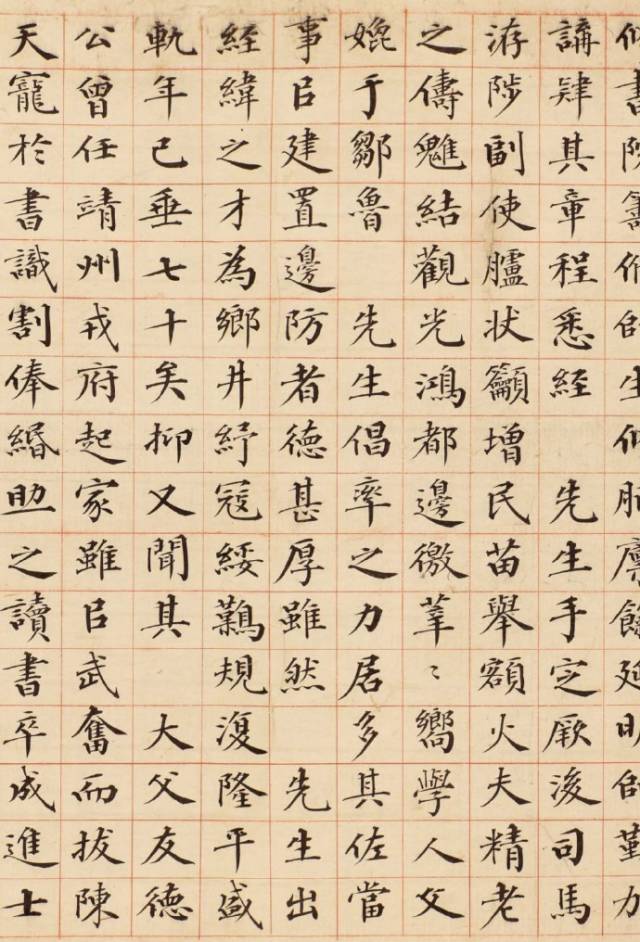 書院修師生修脯廩餼延明師勤力
講肄其章程悉經 先生手定厥後司馬
游陟副使臚狀籲增民苗舉額火夫精老
之儔魋結觀光鴻都邊徼莘〻嚮學人父
媲于鄒魯 先生倡率之力居多其佐當
事㠯建置邊防者德甚厚雖然 先生出
經緯之才為鄉井紓寇綏難規復隆平盛
軌年已垂七十矣抑又聞其 大父友德
公曾任靖州戎府起家雖㠯武奮而拔陳
天寵於書識割俸緡助之讀書卒成進士